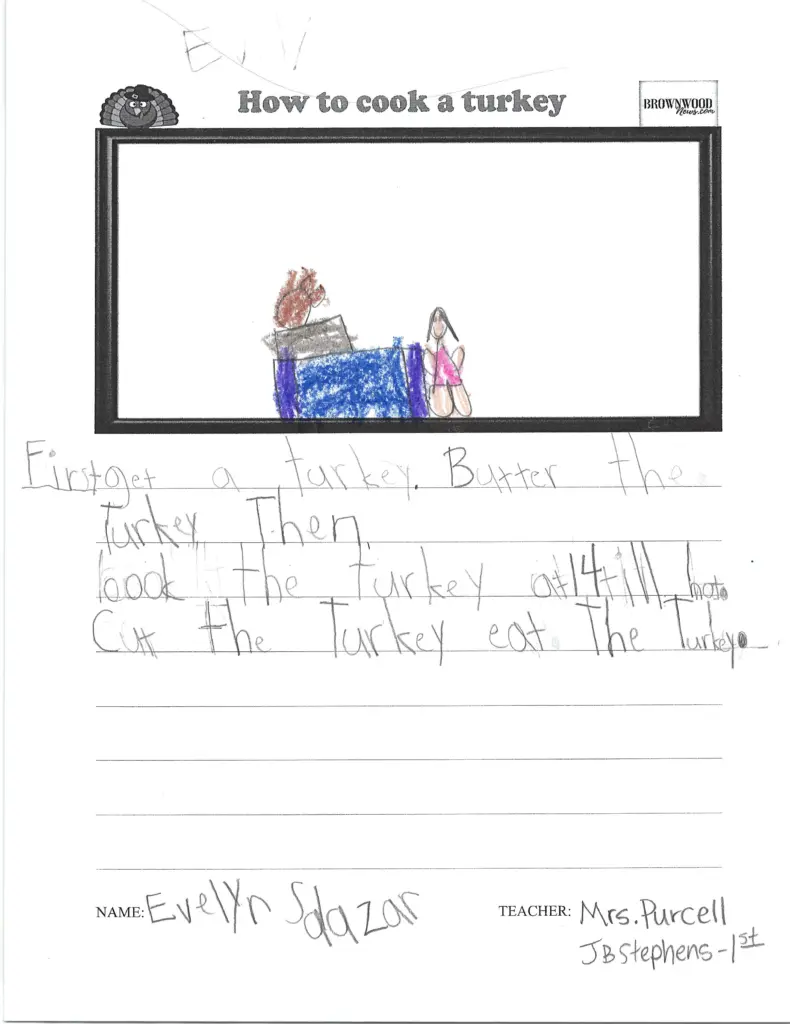 EV
How to cook a turkey
BROWNWOOD
News.com
First get a turkey. Butter the
Turkey Then,
cook the turkey at 14 till hot.
Cut the Turkey eat The Turkey.
NAME: Evelyn Salazar
TEACHER: Mrs. Purcell
JB Stephens-1st